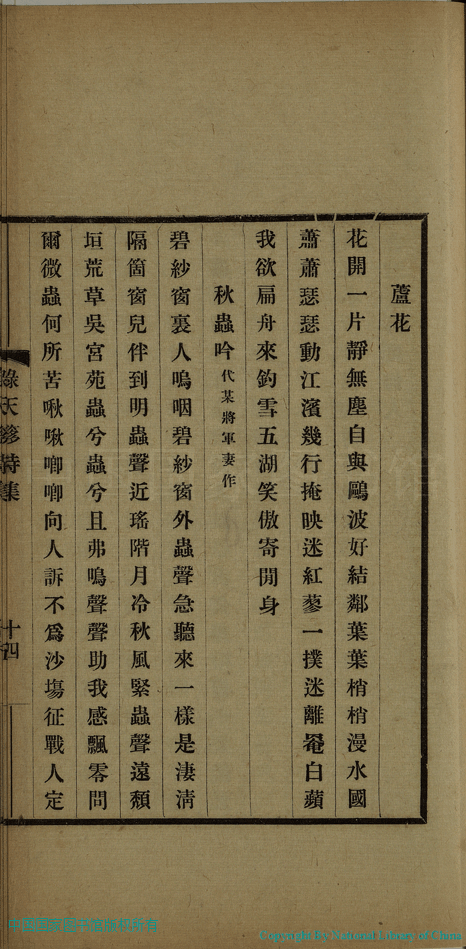 蘆花
花開一片靜無塵自與鷗波好結鄰葉葉梢梢漫水國
蕭蕭瑟瑟動江濱幾行掩映迷紅蓼一撲迷離罨白蘋
我欲扁舟來釣雪五湖笑傲寄閒身
秋蟲吟代某將軍妻作
碧紗窗裏人嗚咽碧紗窗外蟲聲急聽來一樣是淒清
隔箇窗兒伴到明蟲聲近瑤階月冷秋風緊蟲聲遠頹
垣荒草吳宮苑蟲兮蟲兮且弗鳴聲聲助我感飄零問
爾微蟲何所苦啾啾唧唧向人訴不爲沙塲征戰人定
綠天簃詩集
十四
Copyright by National Library of China